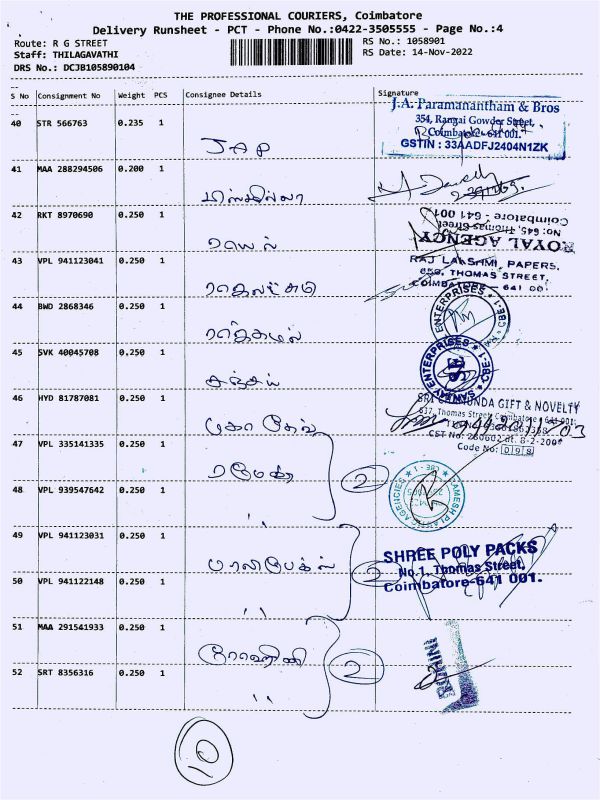 THE PROFESSIONAL COURIERS, Coimbatore
Delivery Runsheet - PCT - Phone No.:0422-3505555 - Page No.:4
Route: R G STREET
RS No.: 1058901
Staff: THILAGAVATHI
RS Date: 14-Nov-2022
DRS No.: DCJB105890104
S No Consignment No Weight PCS Consignee Details Signature
40 STR 566763 0.235 1 JAP
J.A. Paramanantham & Bros
354, Rangai Gowder Street,
Coimbatore - 641 001.
GSTIN : 33AADFJ2404N1ZK
41 MAA 288294506 0.200 1
42 RKT 8970690 0.250 1 ராயல்
ROYAL AGENCY
No: 645, Thomas Street,
Coimbatore - 641 001
43 VPL 941123041 0.250 1 ராஜலட்சுமி
RAJ LAKSHMI PAPERS,
659, THOMAS STREET,
COIMBATORE - 641 001
44 BWD 2868346 0.250 1
ENTERPRISES ★ CBE-1
45 SVK 40045708 0.250 1 சஞ்சய்
SANJAY ENTERPRISES ★ CBE-1
46 HYD 81787081 0.250 1 மகா தேவ்
SRI CHAMUNDA GIFT & NOVELTY
637, Thomas Street, Coimbatore - 641 001.
CST No: 280602 dt. 8-2-2001
Code No: 098
47 VPL 335141335 0.250 1 ரமேஷ் 2
RAMESH PLASTIC AGENCIES ★ CBE - 1
48 VPL 939547642 0.250 1 "
49 VPL 941123031 0.250 1 பாலிபேக்ஸ் 2
SHREE POLY PACKS
No.1, Thomas Street,
Coimbatore-641 001.
50 VPL 941122148 0.250 1 "
51 MAA 291541933 0.250 1 ரோஹிணி 2
ROHINI
52 SRT 8356316 0.250 1 "
10